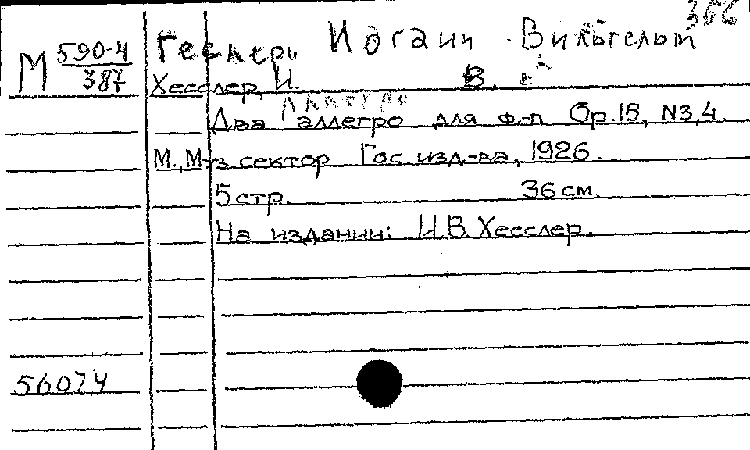 366
М 590-4/387
Геслер Иоганн Вильгельм
Хесслер, И. В.
Аллегро
Два аллегро для ф-п. Op. 18, N3,4.
М., М-з. сектор Гос. изд-ва, 1926.
5 стр. 36 см.
На издании: И.В. Хесслер.
56074